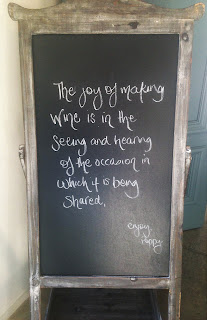 The joy of making
wine is in the
seeing and hearing
of the occasion in
which it is being
shared,
enjoy